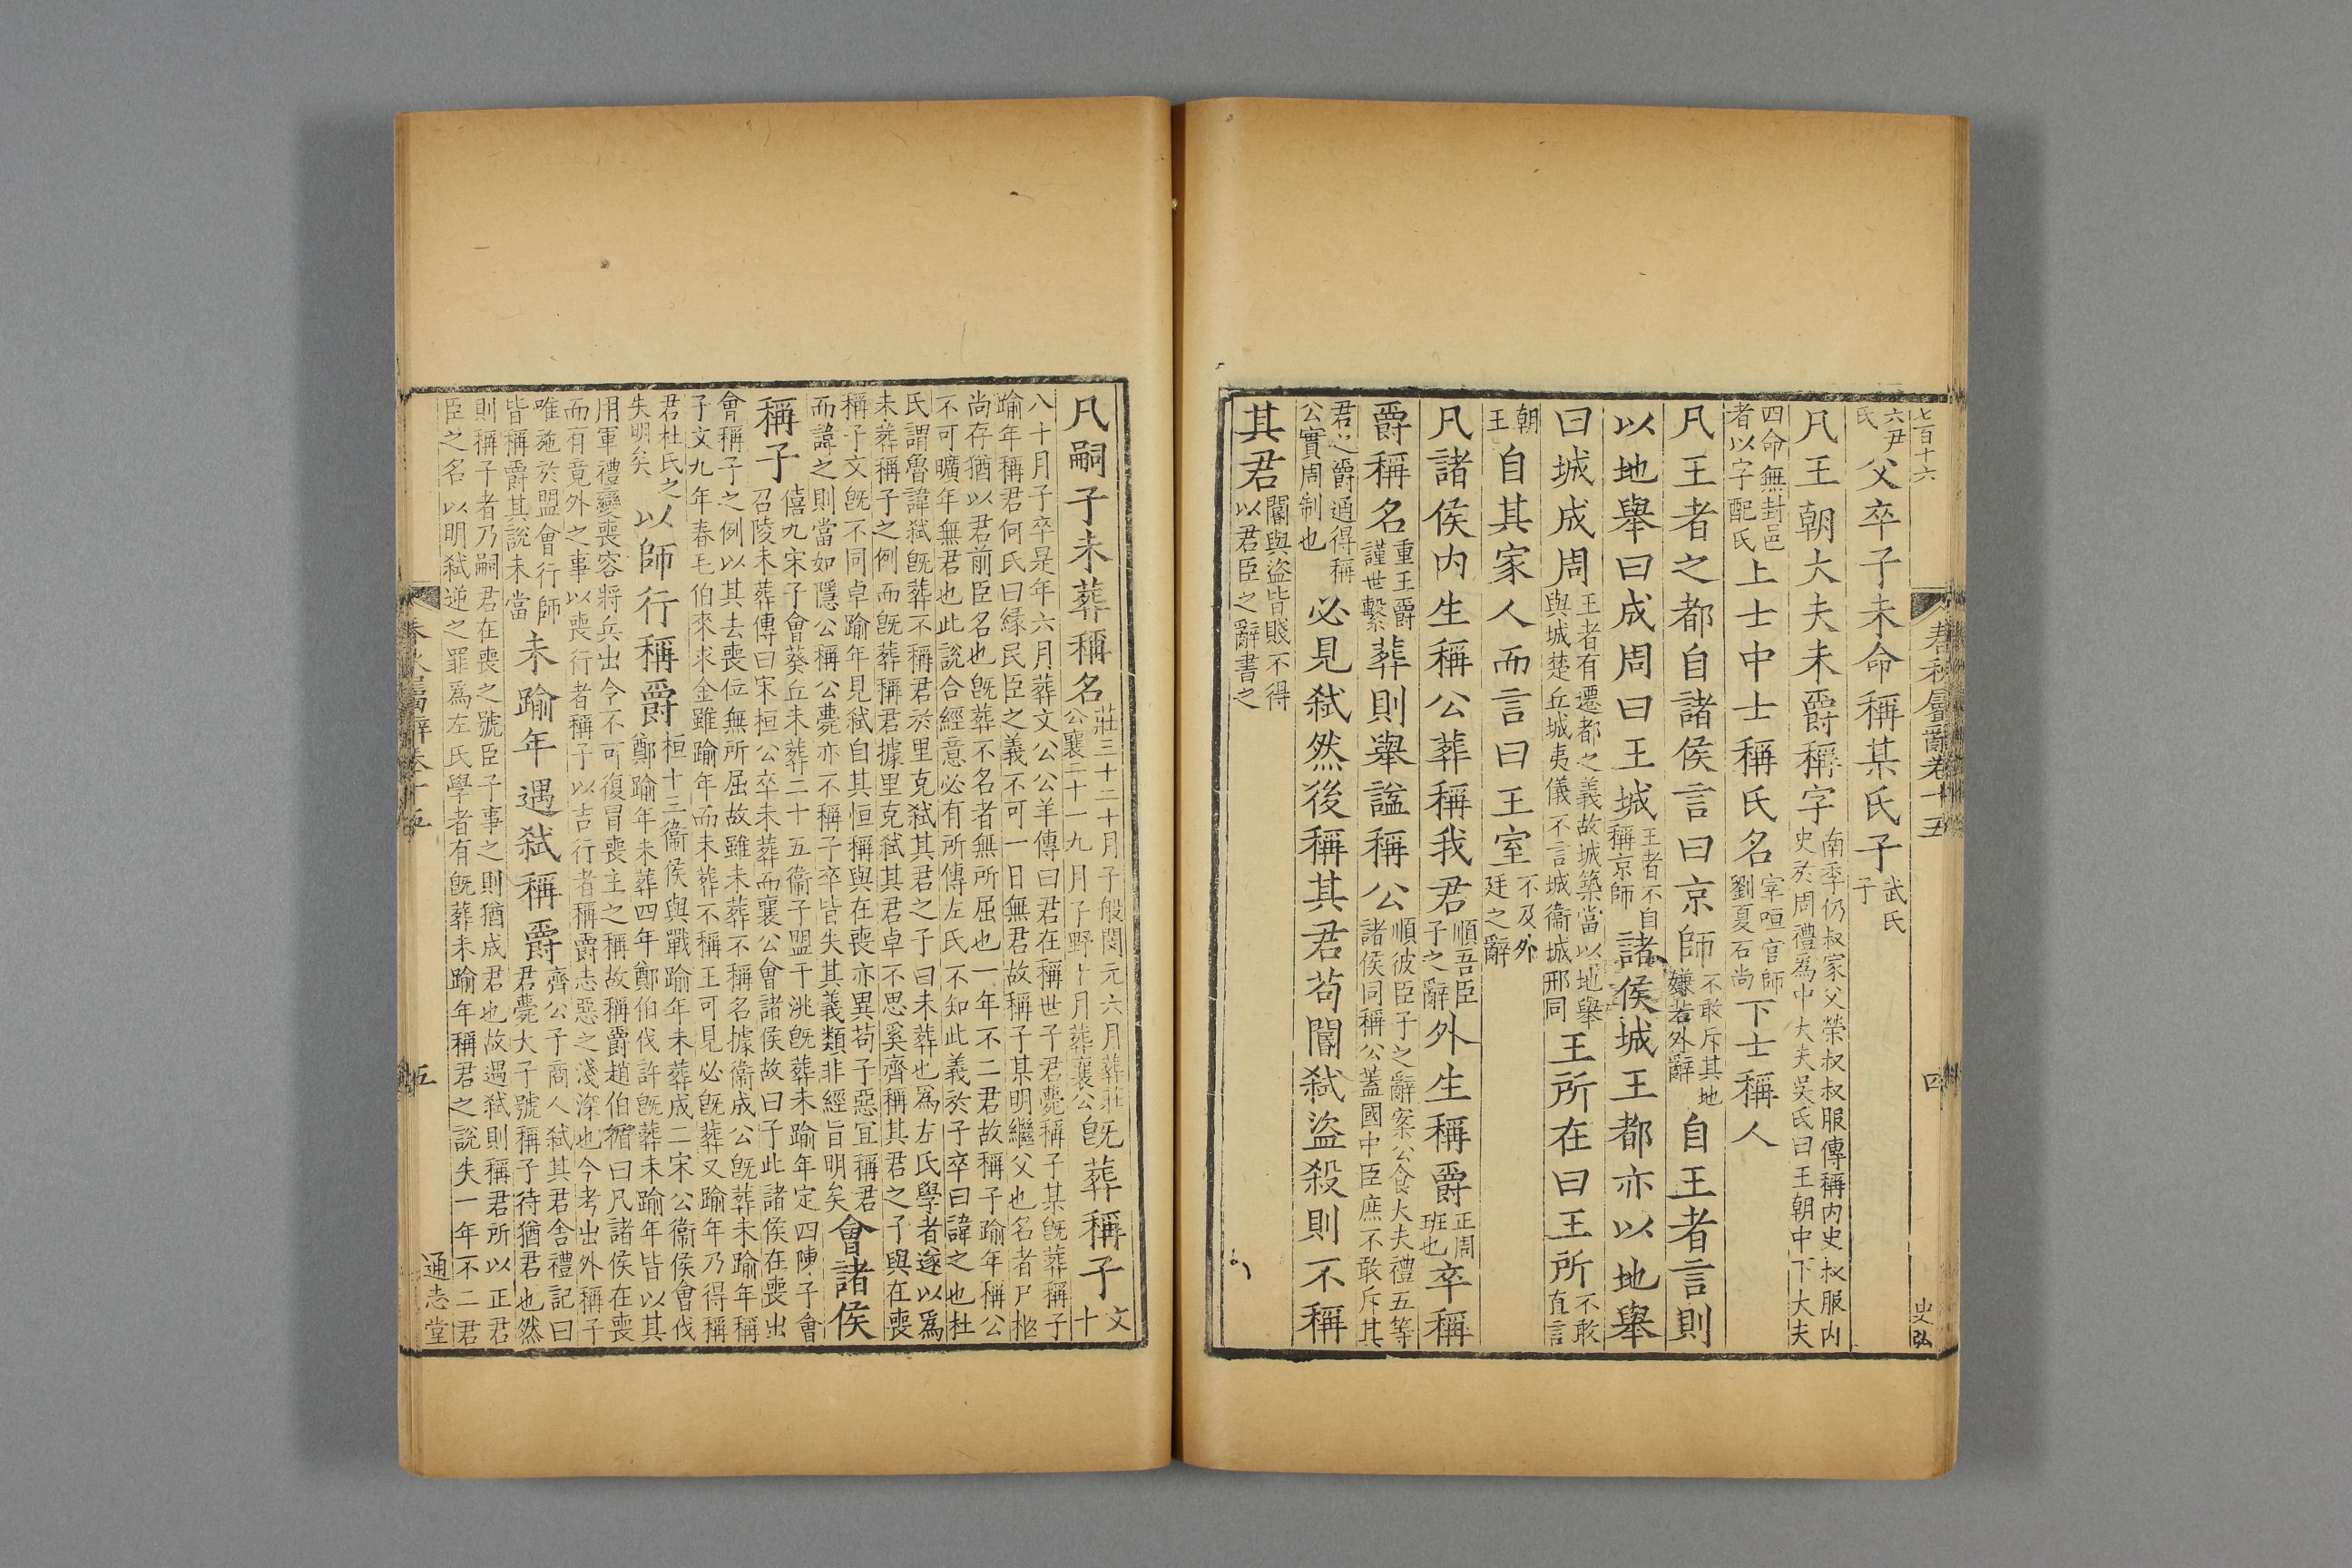 七百十六
春秋屬辭卷十五
四
史弘
六尹
氏
父卒子未命稱某氏子
武氏
子
凡王朝大夫未爵稱字
南季仍叔家父榮叔叔服傳稱内史叔服内
史於周禮為中大夫吳氏曰王朝中下大夫
四命無封邑
者以字配氏
上士中士稱氏名
宰咺官師
劉夏石尚
下士稱人
凡王者之都自諸侯言曰京師
不敢斥其地
嫌若外辭
自王者言則
以地舉曰成周曰王城
王者不自
稱京師
諸侯城王都亦以地舉
曰城成周
王者有遷都之義故城築當以地舉
與城楚丘城夷儀不言城衞城邢同
王所在曰王所
不敢
直言
朝
王
自其家人而言曰王室
不及外
廷之辭
凡諸侯内生稱公葬稱我君
順吾臣
子之辭
外生稱爵
正周
班也
卒稱
爵稱名
重王爵
謹世繫
葬則舉諡稱公
順彼臣子之辭案公食大夫禮五等
諸侯同稱公蓋國中臣庶不敢斥其
君之爵通得稱
公實周制也
必見弑然後稱其君苟閽弑盜殺則不稱
其君
閽與盜皆賤不得
以君臣之辭書之
凡嗣子未葬稱名
莊三十二十月子般閔元六月葬莊
公襄二十一九月子野十月葬襄公
既葬稱子
文
十
八十月子卒是年六月葬文公公羊傳曰君在稱世子君薨稱子某既葬稱子
踰年稱君何氏曰縁民臣之義不可一日無君故稱子某明繼父也名者尸柩
尚存猶以君前臣名也既葬不名者無所屈也一年不二君故稱子踰年稱公
不可曠年無君也此說合經意必有所傳左氏不知此義於子卒曰諱之也杜
氏謂魯諱弑既葬不稱君於里克弑其君之子曰未葬也爲左氏學者遂以爲
未葬稱子之例而既葬稱君據里克弑其君卓不思奚齊稱其君之子與在喪
稱子文既不同卓踰年見弑自其恒稱與在喪亦異苟子惡宜稱君
而諱之則當如隱公稱公薨亦不稱子卒皆失其義類非經旨明矣
會諸侯
稱子
僖九宋子會葵丘未葬二十五衞子盟于洮既葬未踰年定四陳子會
召陵未葬傳曰宋桓公卒未葬而襄公會諸侯故曰子此諸侯在喪出
會稱子之例以其去喪位無所屈故雖未葬不稱名據衞成公既葬未踰年稱
子文九年春毛伯來求金雖踰年而未葬不稱王可見必既葬又踰年乃得稱
君杜氏之
失明矣
以師行稱爵
桓十三衞侯與戰踰年未葬成二宋公衞侯會伐
鄭踰年未葬四年鄭伯伐許既葬未踰年皆以其
用軍禮變喪容將兵出令不可復冒喪主之稱故稱爵趙伯循曰凡諸侯在喪
而有竟外之事以喪行者稱子以吉行者稱爵志惡之淺深也今考出外稱子
唯施於盟會行師
皆稱爵其說未當
未踰年遇弑稱爵
齊公子商人弑其君舍禮記曰
君薨大子號稱子待猶君也然
則稱子者乃嗣君在喪之號臣子事之則猶成君也故遇弑則稱君所以正君
臣之名以明弑逆之罪爲左氏學者有既葬未踰年稱君之說失一年不二君
春秋屬辭卷十五
五
通志堂